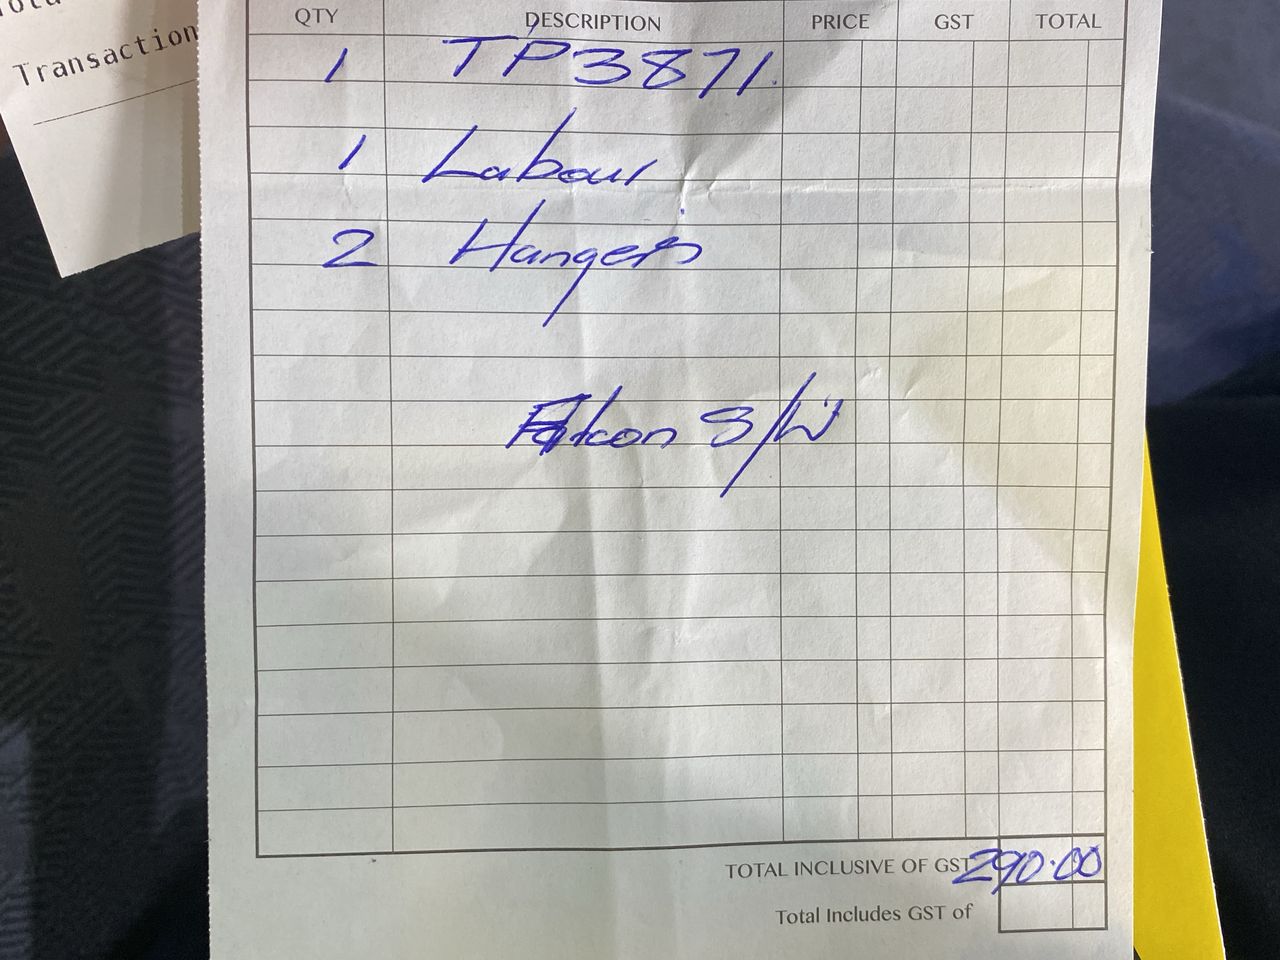 Transaction
QTY DESCRIPTION PRICE GST TOTAL
1 TP3871.
1 Labour
2 Hangers
Falcon S/W
TOTAL INCLUSIVE OF GST 290.00
Total Includes GST of